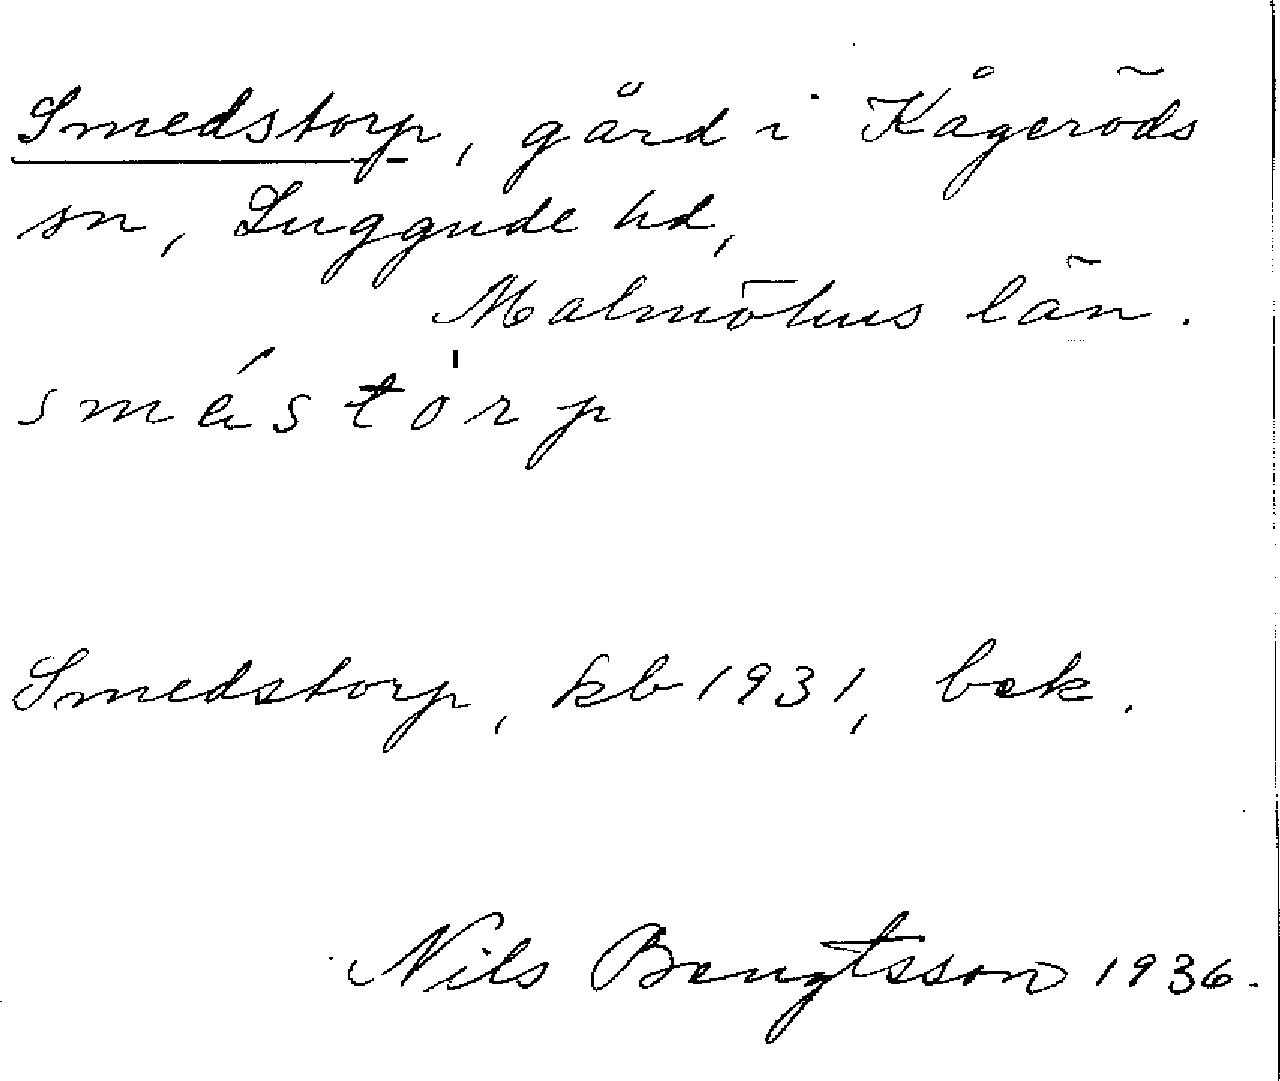 Smedstorp, gård i Kågeröds
sn, Luggude hd,
Malmöhus län.
sméstòrp
Smedstorp, kb 1931, bek.
Nils Bengtsson 1936.